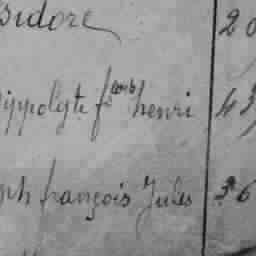 sidore 20
hippolyte f^{çois} henri 43
ph françois Jules 36